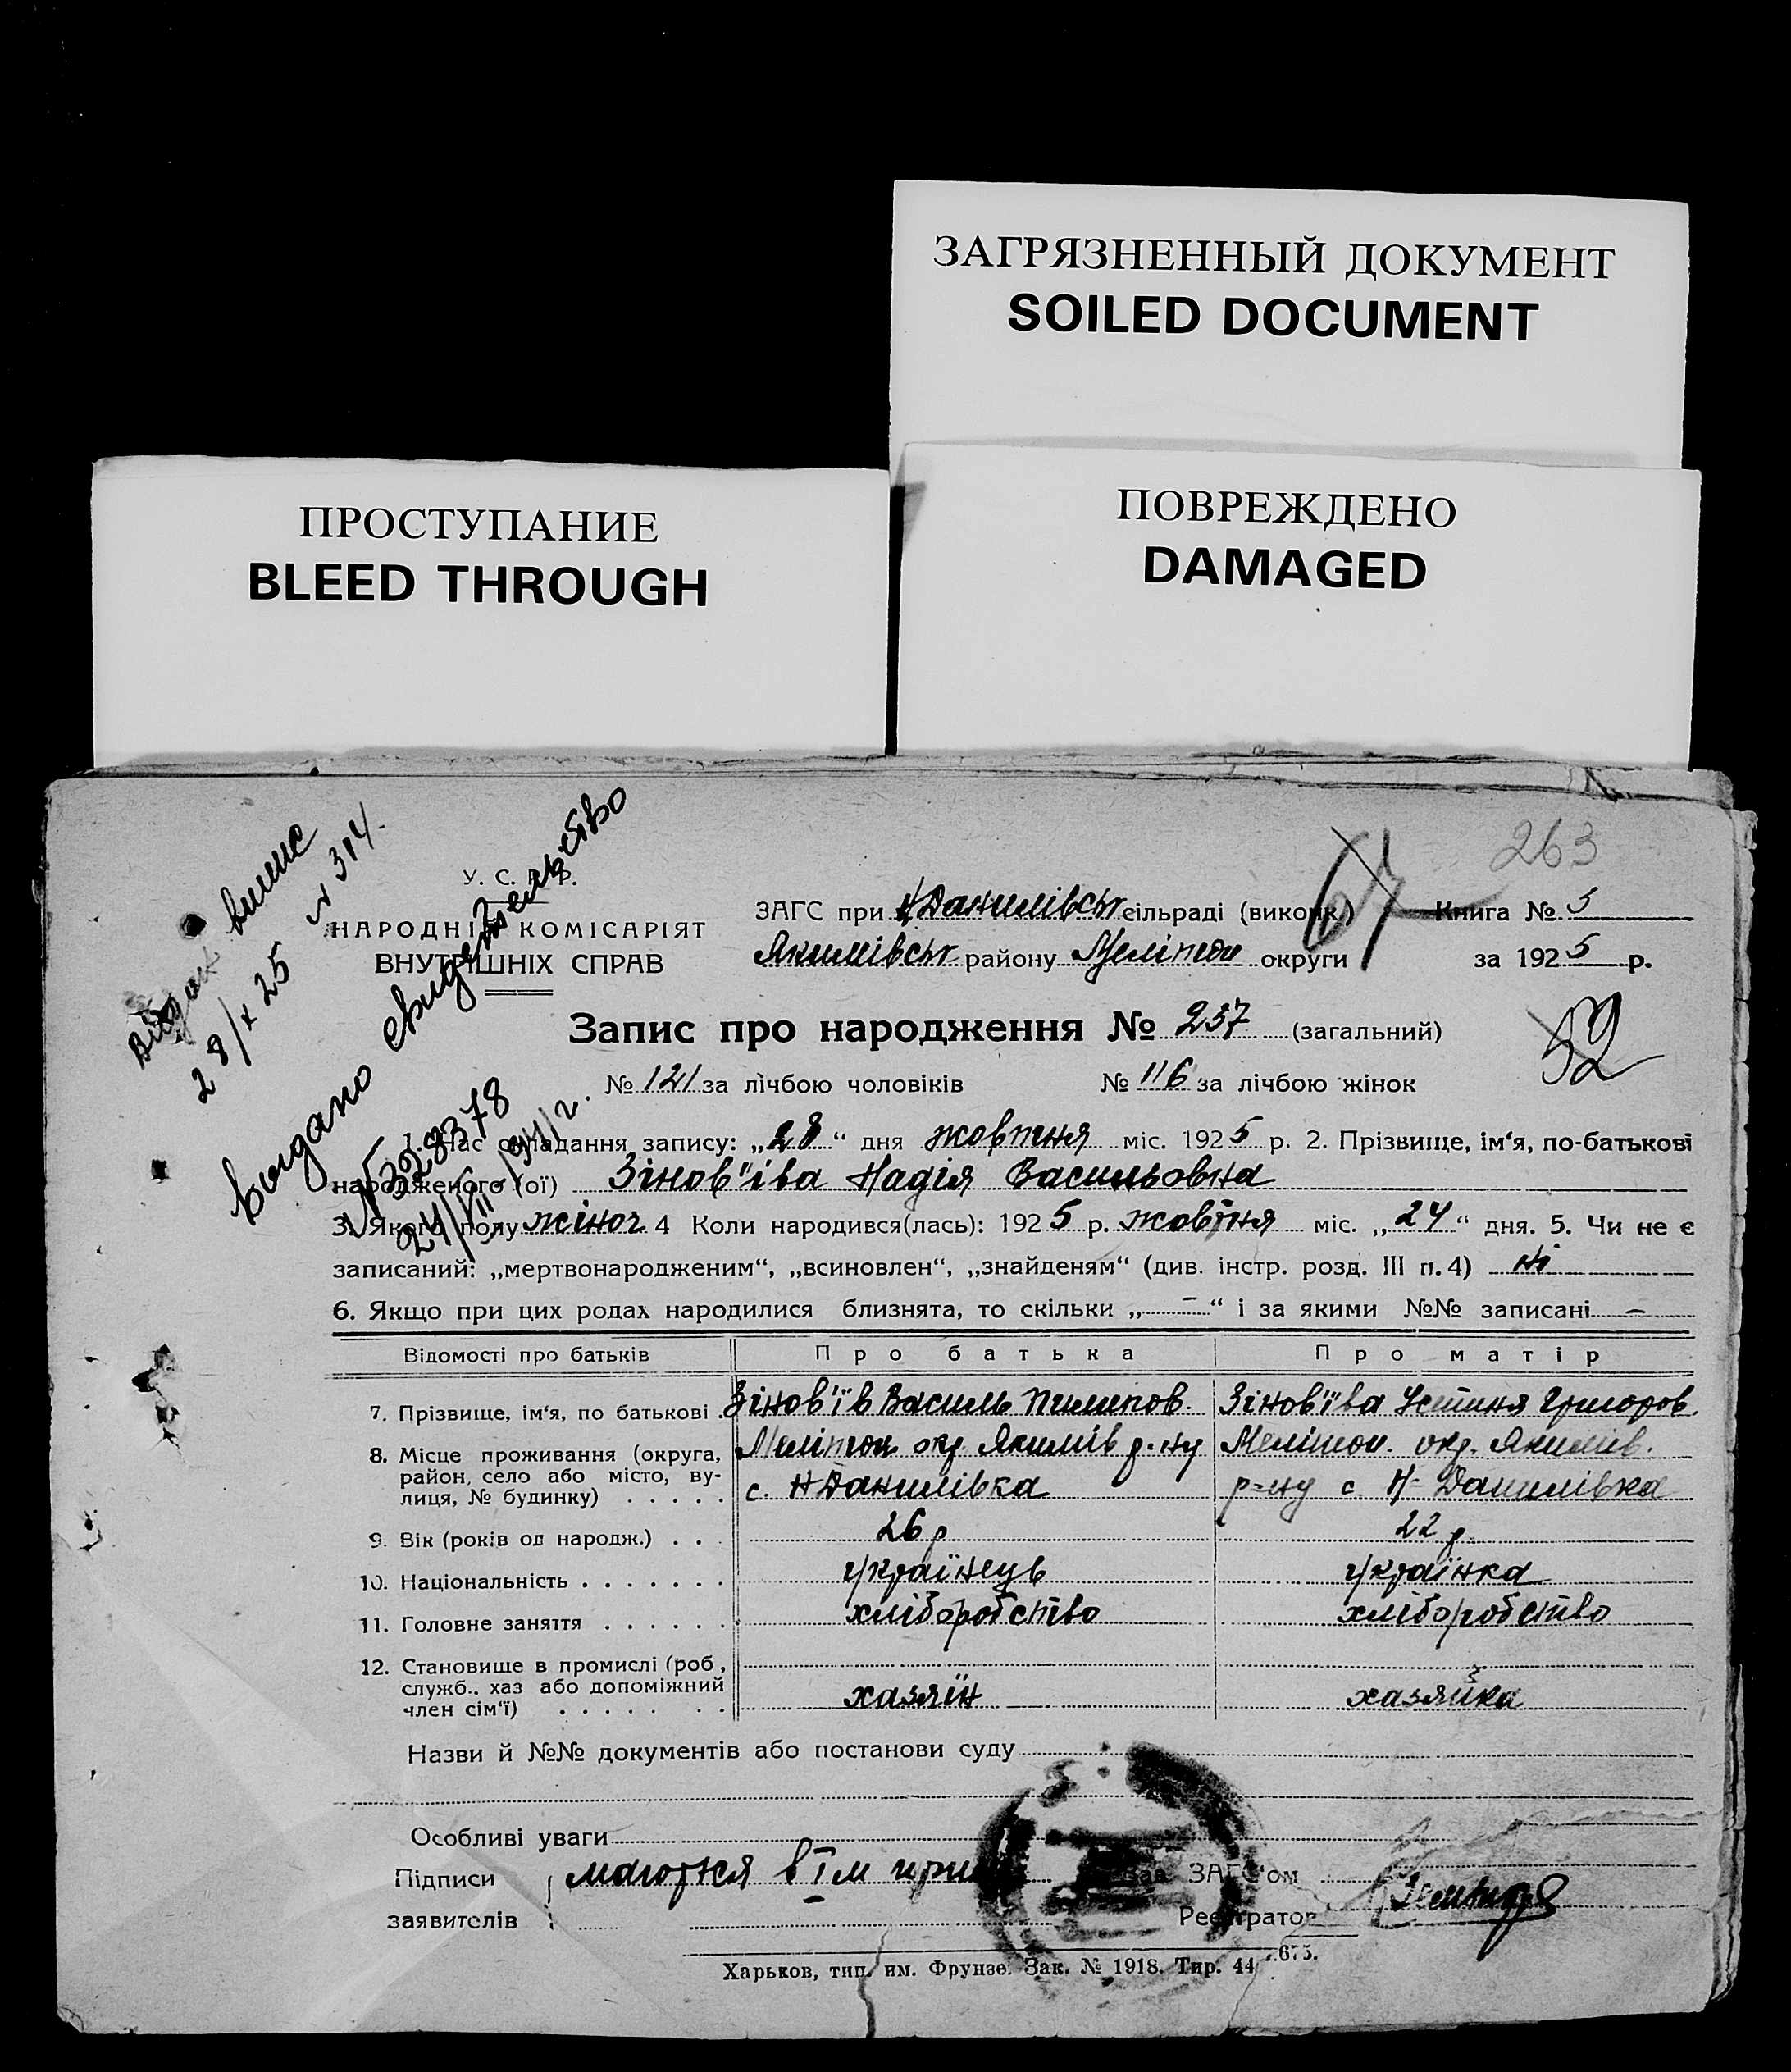 ЗАГРЯЗНЕННЫЙ ДОКУМЕНТ
SOILED DOCUMENT
ПРОСТУПАНИЕ
BLEED THROUGH
ПОВРЕЖДЕНО
DAMAGED
263
67
випис
28/X 25 № 314.
видано свидетельство
328378
У. С. Р. Р.
НАРОДНІЙ КОМІСАРІЯТ
ВНУТРІШНІХ СПРАВ
ЗАГС при Н Данилівськ сільраді (виконк.) Книга № 3
Якимівськ району Мелітоп округи за 1925 р.
Запис про народження № 237 (загальний)
52
№ 121 за лічбою чоловіків № 116 за лічбою жінок
1. Час складання запису: „28“ дня жовтня міс. 1925 р. 2. Прізвище, ім‘я, по-батькові
народженого (ої) Зінов"іва Надія Васильовна
3. Якого полу жіноч 4 Коли народився(лась): 1925 р. жовтня міс. „24“ дня. 5. Чи не є
записаний: „мертвонародженим“, „всиновлен“, „знайденям“ (див. інстр. розд. III п. 4) ні
6. Якщо при цих родах народилися близнята, то скільки „–“ і за якими №№ записані –
Відомості про батьків Про батька Про матір
7. Прізвище, ім‘я, по батькові . Зінов'їв Василь Пилипов. Зінов'їва Устиня Григоров.
8. Місце проживання (округа, район, село або місто, вулиця, № будинку) . . . . .
Мелітоп окр Якимів р-ну Мелітоп. окр. Якимів.
с. Н Данилівка р-ну с Н-Данилівка
9. Вік (років од народж.) . . . 26 р 22 р.
10. Національність . . . . . . . українець українка
11. Головне заняття . . . . . . хліборобство хліборобство
12. Становище в промислі (роб, служб.. хаз або допоміжний член сім‘ї) . . . . . . .
хазяїн хазяйка
Назви й №№ документів або постанови суду
Особливі уваги
Підписи маються в І м Зав. ЗАГС‘ом
заявителів Реєстратор
Харьков, тип. им. Фрунзе. Зак. № 1918. Тир. 44 .675.